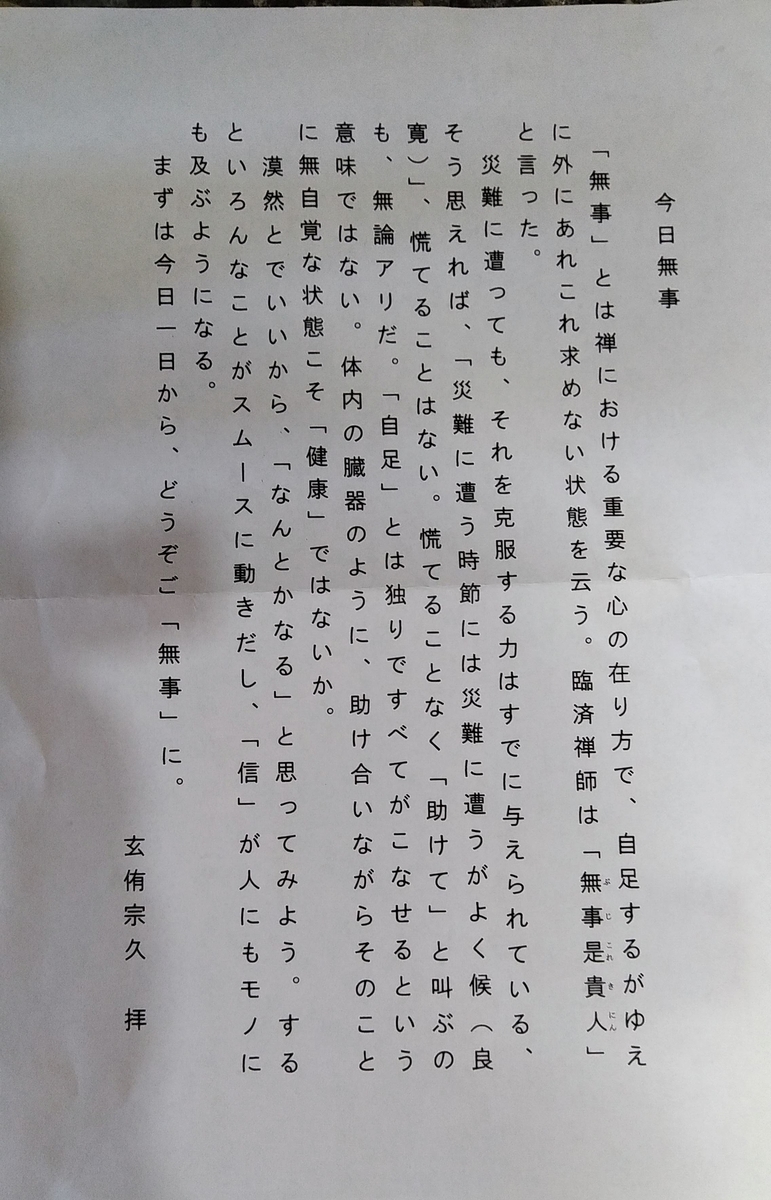 今日無事
「無事」とは禅における重要な心の在り方で、自足するがゆえ
に外にあれこれ求めない状態を云う。臨済禅師は「無事是貴人」
ぶじこれきにん
と言った。
災難に遭っても、それを克服する力はすでに与えられている、
そう思えれば、「災難に遭う時節には災難に遭うがよく候（良
寛）」、慌てることはない。慌てることなく「助けて」と叫ぶの
も、無論アリだ。「自足」とは独りですべてがこなせるという
意味ではない。体内の臓器のように、助け合いながらそのこと
に無自覚な状態こそ「健康」ではないか。
漠然とでいいから、「なんとかなる」と思ってみよう。する
といろんなことがスムースに動きだし、「信」が人にもモノに
も及ぶようになる。
まずは今日一日から、どうぞご「無事」に。
玄侑宗久　拝